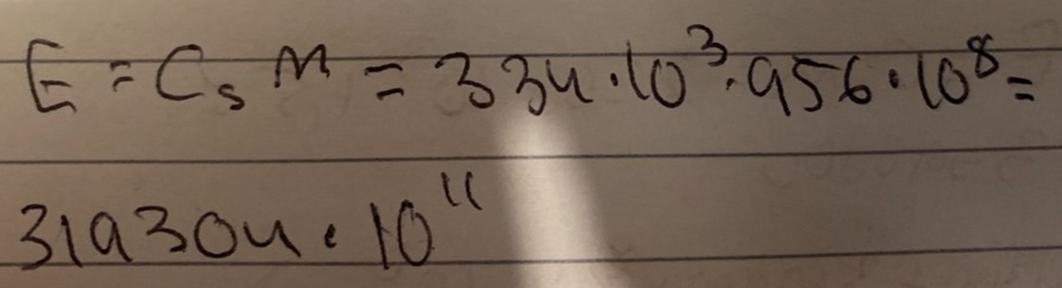 E = Cₛ m = 334·10³·956·10⁸ =
319304·10¹¹